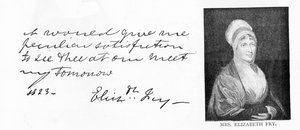 it would give me
peculiar satisfaction
to see thee at our meet
ing tomorrow
Eliz.th Fry
MRS. ELIZABETH FRY.